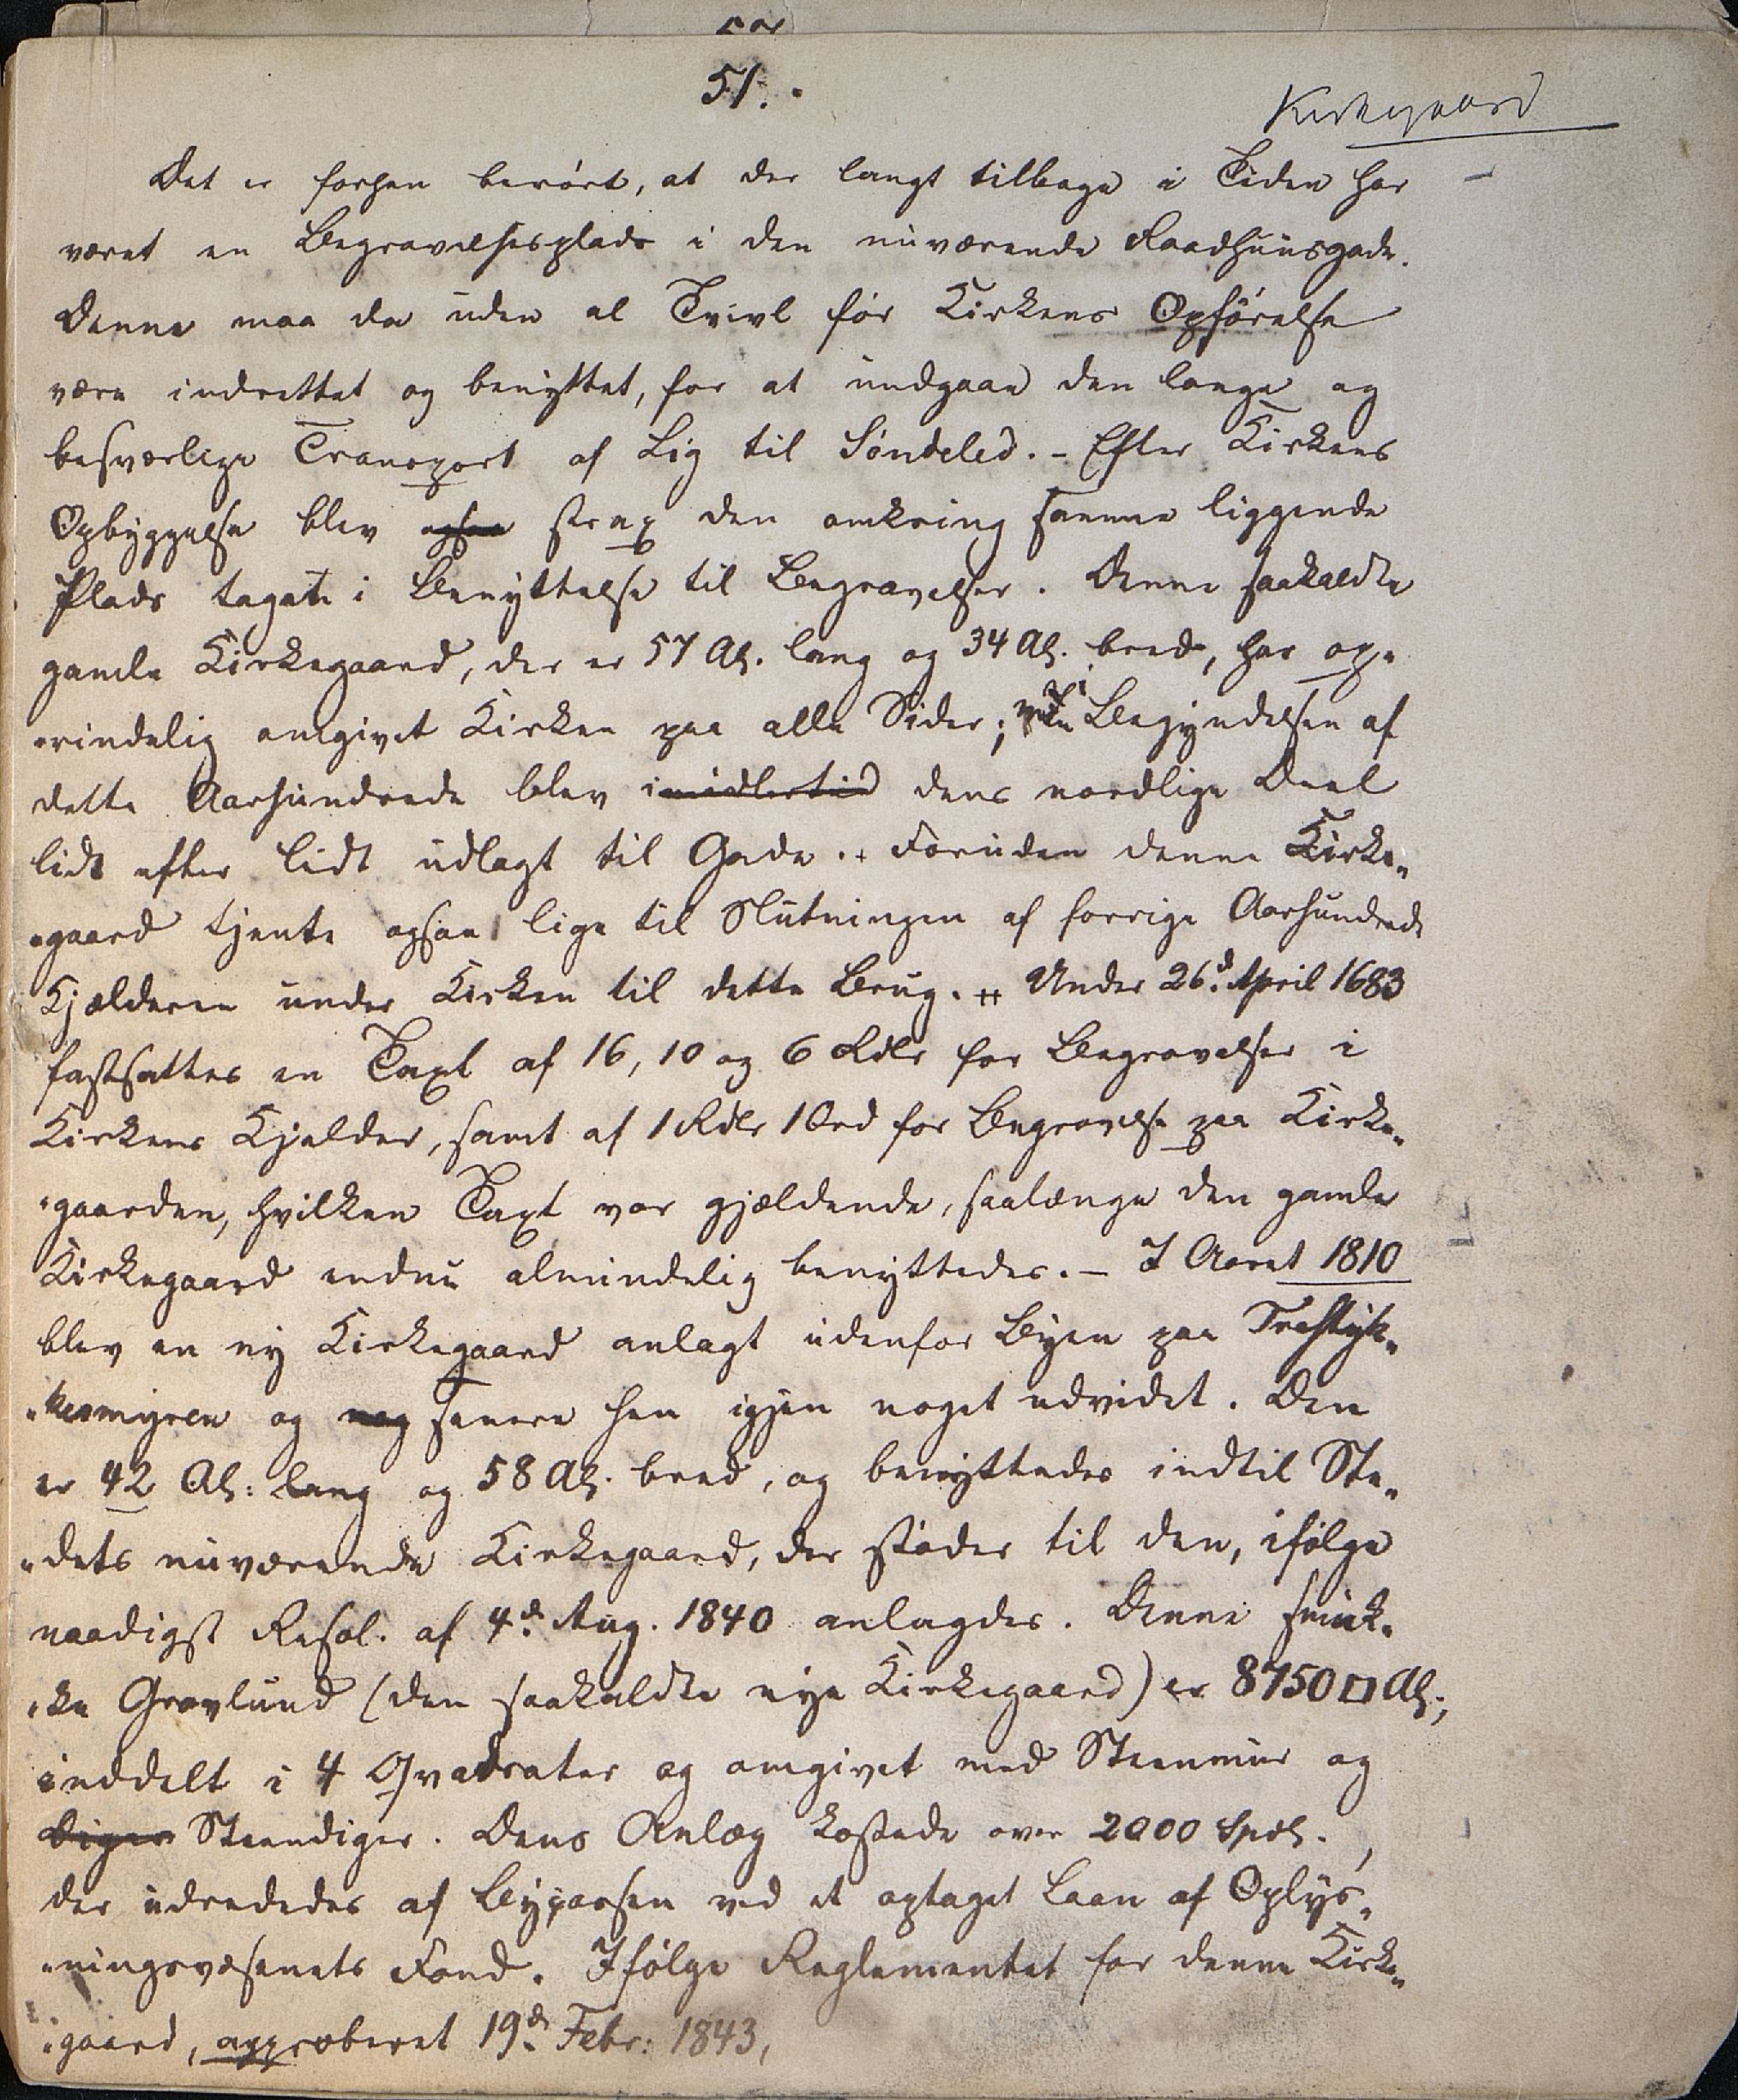 51.
Kirkegaard
Det er forhen berört, at der langt tilbage i Tiden har
været en Begravelsesplads i den nuværende Raadhuusgade.
Denne maa da uden al Tvivl för Kirkens Opförelse
være indrettet og benyttet, for at undgaae den lange og
besværlige Transport af Lig til Söndeled. – Efter Kirkens
Opbyggelse blev ogsaa strax den omkring samme liggende
Plads taget i Benyttelse til Begravelser. Denne saakaldte
gamle Kirkegaard, der er 57 Al. lang og 34 Al. bred, har op-
rindelig omgivet Kirken paa alle Sider; i Begyndelsen af
dette Aarhundrede blev imidlertid dens nordlige Deel
lidt efter lidt udlagt til Gade. + Foruden denne Kirke-
gaard tjente ogsaa lige til Slutningen af forrige Aarhundrede
Kjælderen under Kirken til dette Brug. ++ Under 26d April 1683
fastsattes en Taxt af 16, 10 og 6 Rdlr for Begravelser i
Kirkens Kjelder, samt af 1 Rdlr 1 Ord for Begravelse paa Kirke-
gaarden, hvilken Taxt var gjældende, saalænge den gamle
Kirkegaard endnu almindelig benyttedes. – I Aaret 1810
blev en ny Kirkegaard anlagt udenfor Byen paa Træstyk-
kesmyren og nog senere hen igjen noget udvidet. Den
er 42 Al: lang og 58 Al. bred, og benyttedes indtil Ste-
dets nuværende Kirkegaard, der stöder til den, ifölge
naadigst Resol. af 4d Aug. 1840 anlagdes. Denne smuk-
ke Gravlund (den saakaldte nye Kirkegaard) er 8750 □ Al;
inddelt i 4 Qvadrater og omgivet med Steenmur og
Diger Steendiger. Dens Anlæg kostede over 2000 Spdl.,
der udrededes af Bykassen ved et optaget Laan af Oplys-
ningsvæsenets Fond. Ifölge Reglementet for denne Kirke-
gaard, approberet 19d Febr: 1843,